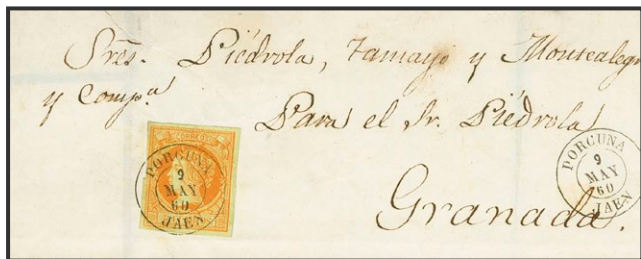 Sres. Piédrola, Tamayo y Montealegr
y Compa.
Para el Sr. Piédrola
Granada.
CORREOS
PORCUNA
9
MAY
60
JAEN
PORCUNA
9
MAY
60
JAEN